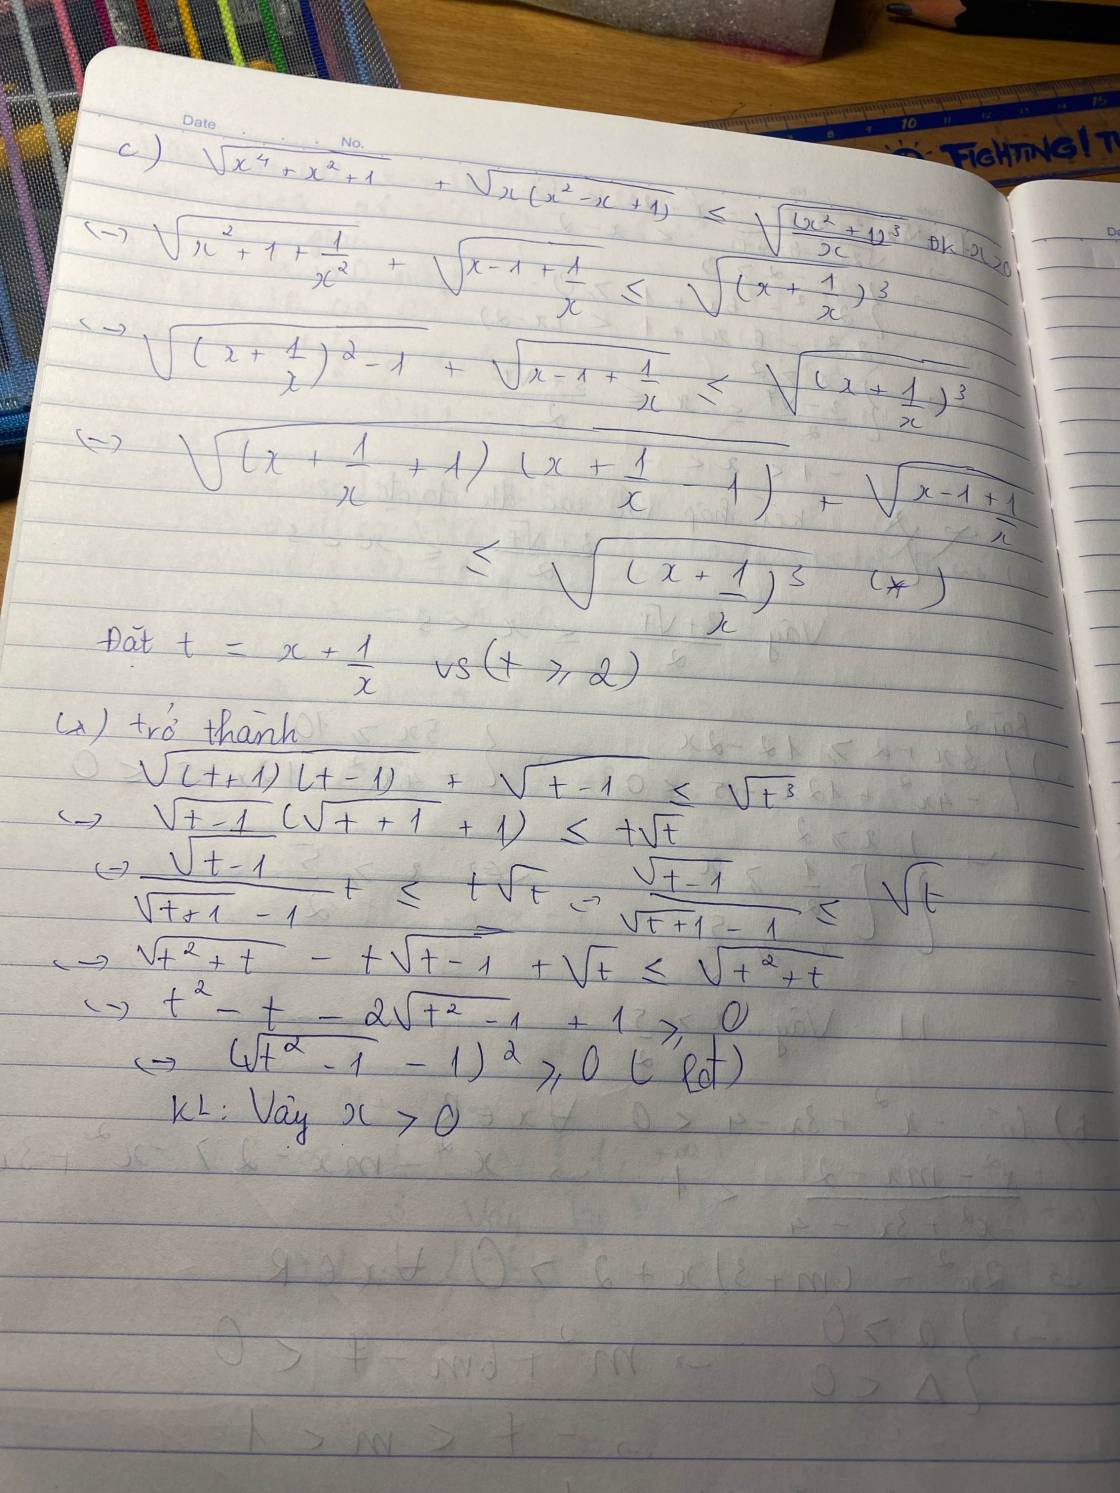 Date No.
10 15
FIGHTING!
c) √(x⁴ + x² + 1) + √(x(x² - x + 1)) ≤ √((x² + 1)³/x) ĐK x>0
<-> √(x² + 1 + 1/x²) + √(x - 1 + 1/x) ≤ √((x + 1/x)³)
<-> √((x + 1/x)² - 1) + √(x - 1 + 1/x) ≤ √((x + 1/x)³)
<-> √((x + 1/x + 1)(x + 1/x - 1)) + √(x - 1 + 1/x)
≤ √((x + 1/x)³) (*)
Đặt t = x + 1/x vs (t ≥ 2)
(*) trở thành
√((t+1)(t-1)) + √(t-1) ≤ √(t³)
<-> √(t-1) (√(t+1) + 1) ≤ t√t
<-> √(t-1)/(√(t+1) - 1) t ≤ t√t <-> √(t-1)/(√(t+1) - 1) ≤ √t
<-> √(t² + t) - t√(t-1) + √t ≤ √(t² + t)
<-> t² - t - 2√(t² - 1) + 1 ≥ 0
<-> (√(t² - 1) - 1)² ≥ 0 (lđ)
KL: Vậy x > 0